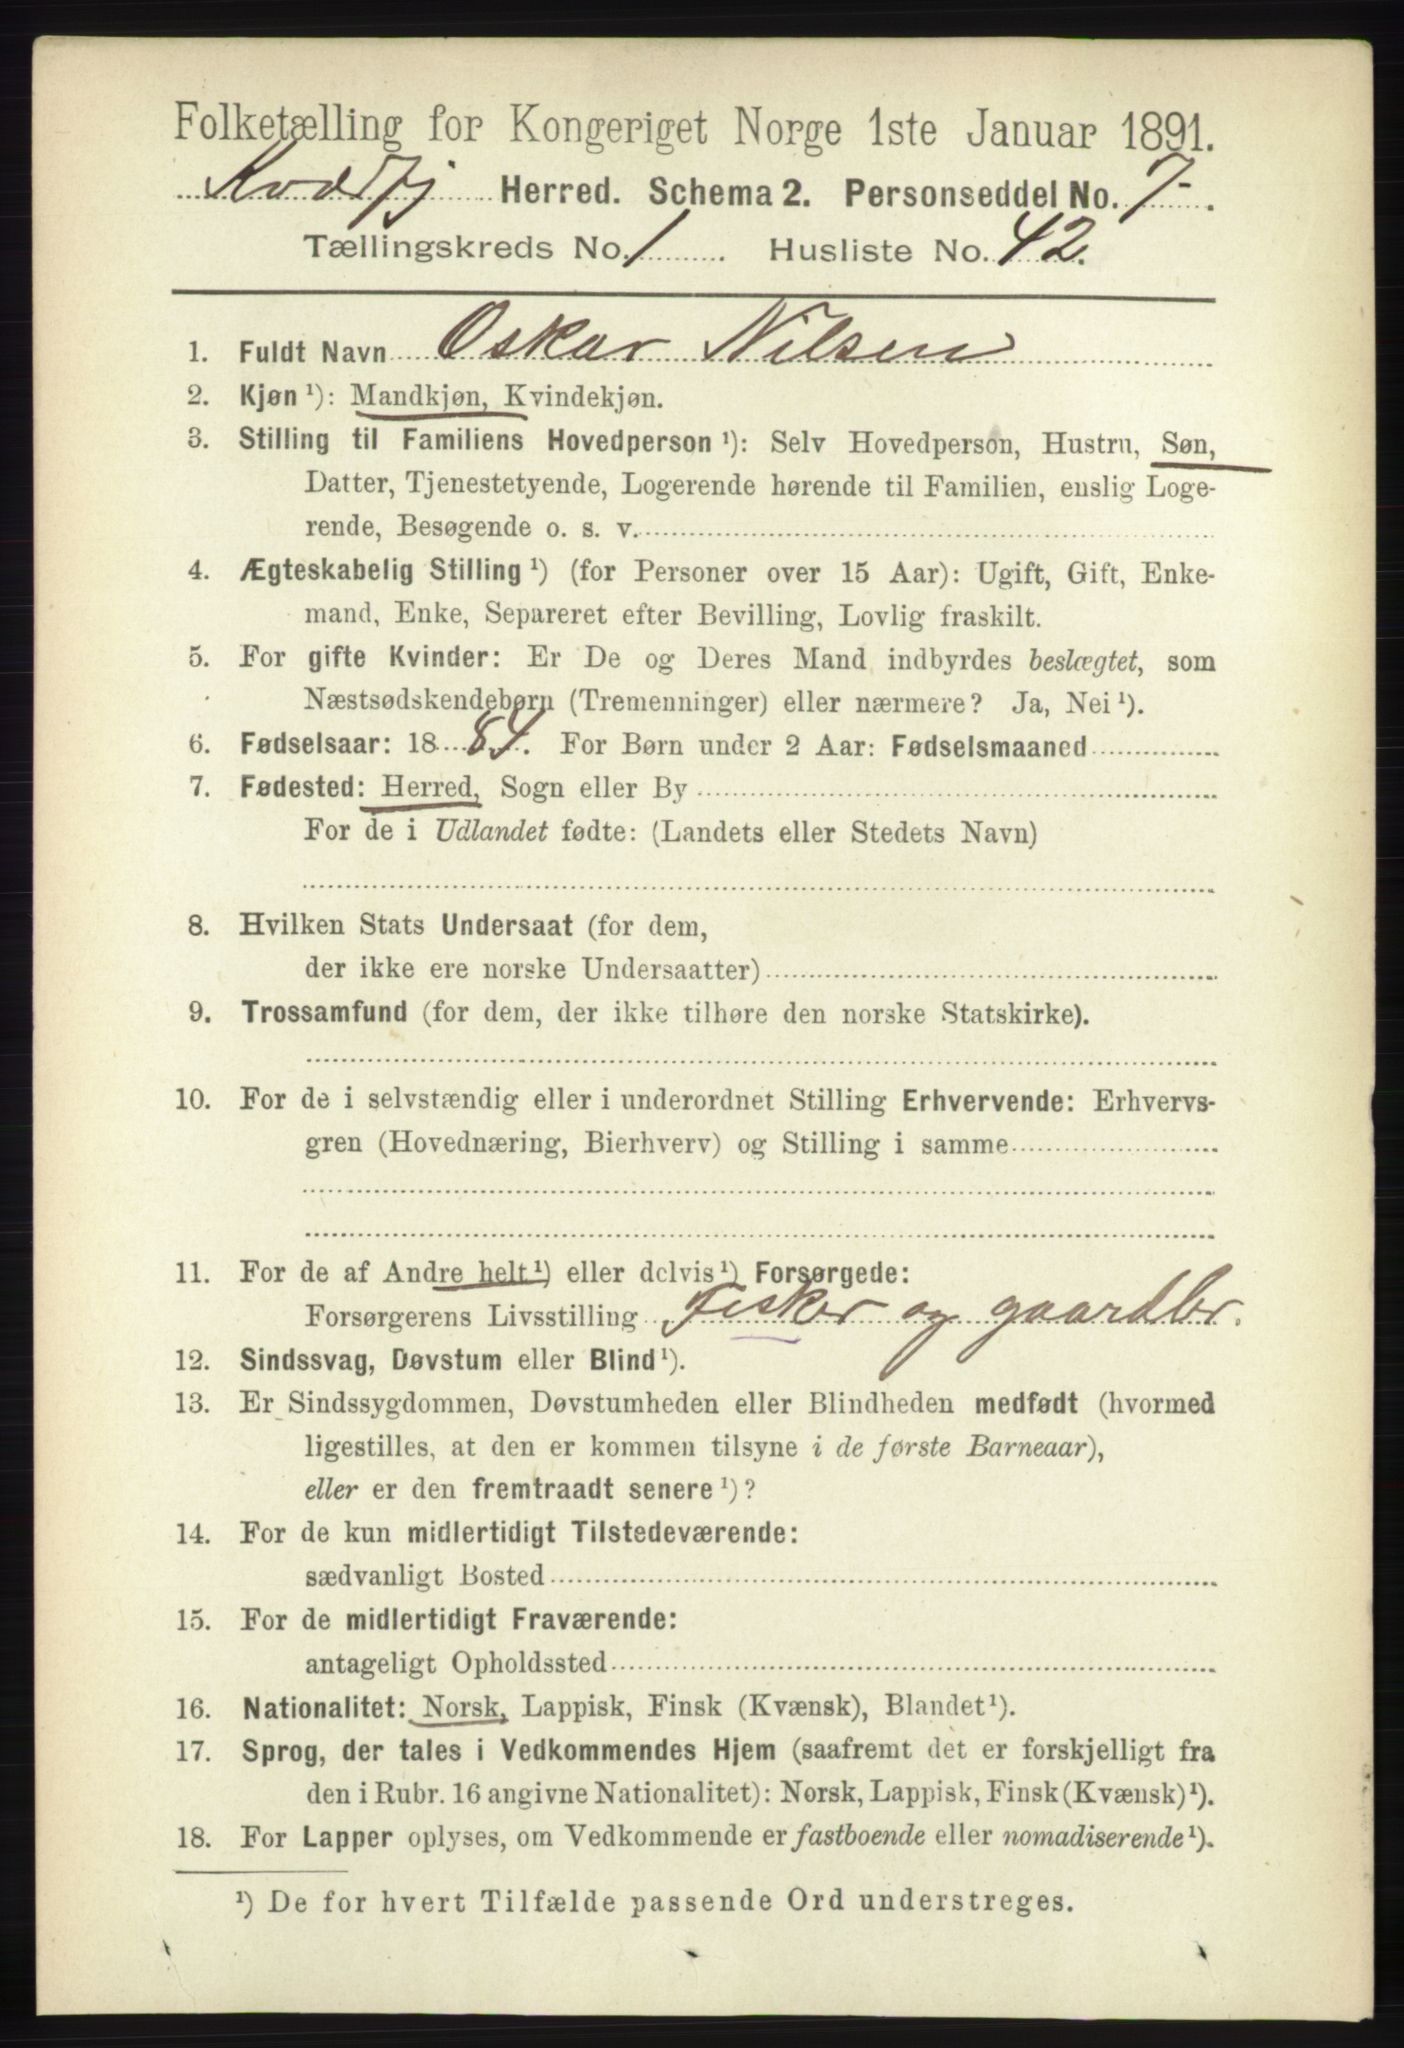 Folketælling for Kongeriget Norge 1ste Januar 1891.
Kvædfj Herred. Schema 2. Personseddel No. 7.
Tællingskreds No. 1. Husliste No. 42.
1. Fuldt Navn Oskar Nilsen
2. Kjøn ¹): Mandkjøn, Kvindekjøn.
3. Stilling til Familiens Hovedperson ¹): Selv Hovedperson, Hustru, Søn,
Datter, Tjenestetyende, Logerende hørende til Familien, enslig Loge-
rende, Besøgende o. s. v.
4. Ægteskabelig Stilling ¹) (for Personer over 15 Aar): Ugift, Gift, Enke-
mand, Enke, Separeret efter Bevilling, Lovlig fraskilt.
5. For gifte Kvinder: Er De og Deres Mand indbyrdes beslægtet, som
Næstsødskendebørn (Tremenninger) eller nærmere? Ja, Nei ¹).
6. Fødselsaar: 1884. For Børn under 2 Aar: Fødselsmaaned
7. Fødested: Herred, Sogn eller By
For de i Udlandet fødte: (Landets eller Stedets Navn)
8. Hvilken Stats Undersaat (for dem,
der ikke ere norske Undersaatter)
9. Trossamfund (for dem, der ikke tilhøre den norske Statskirke).
10. For de i selvstændig eller i underordnet Stilling Erhvervende: Erhvervs-
gren (Hovednæring, Bierhverv) og Stilling i samme
11. For de af Andre helt ¹) eller delvis ¹) Forsørgede:
Forsørgerens Livsstilling Fisker og gaardbr.
12. Sindssvag, Døvstum eller Blind ¹).
13. Er Sindssygdommen, Døvstumheden eller Blindheden medfødt (hvormed
ligestilles, at den er kommen tilsyne i de første Barneaar),
eller er den fremtraadt senere ¹)?
14. For de kun midlertidigt Tilstedeværende:
sædvanligt Bosted
15. For de midlertidigt Fraværende:
antageligt Opholdssted
16. Nationalitet: Norsk, Lappisk, Finsk (Kvænsk), Blandet ¹).
17. Sprog, der tales i Vedkommendes Hjem (saafremt det er forskjelligt fra
den i Rubr. 16 angivne Nationalitet): Norsk, Lappisk, Finsk (Kvænsk) ¹).
18. For Lapper oplyses, om Vedkommende er fastboende eller nomadiserende ¹).
¹) De for hvert Tilfælde passende Ord understreges.